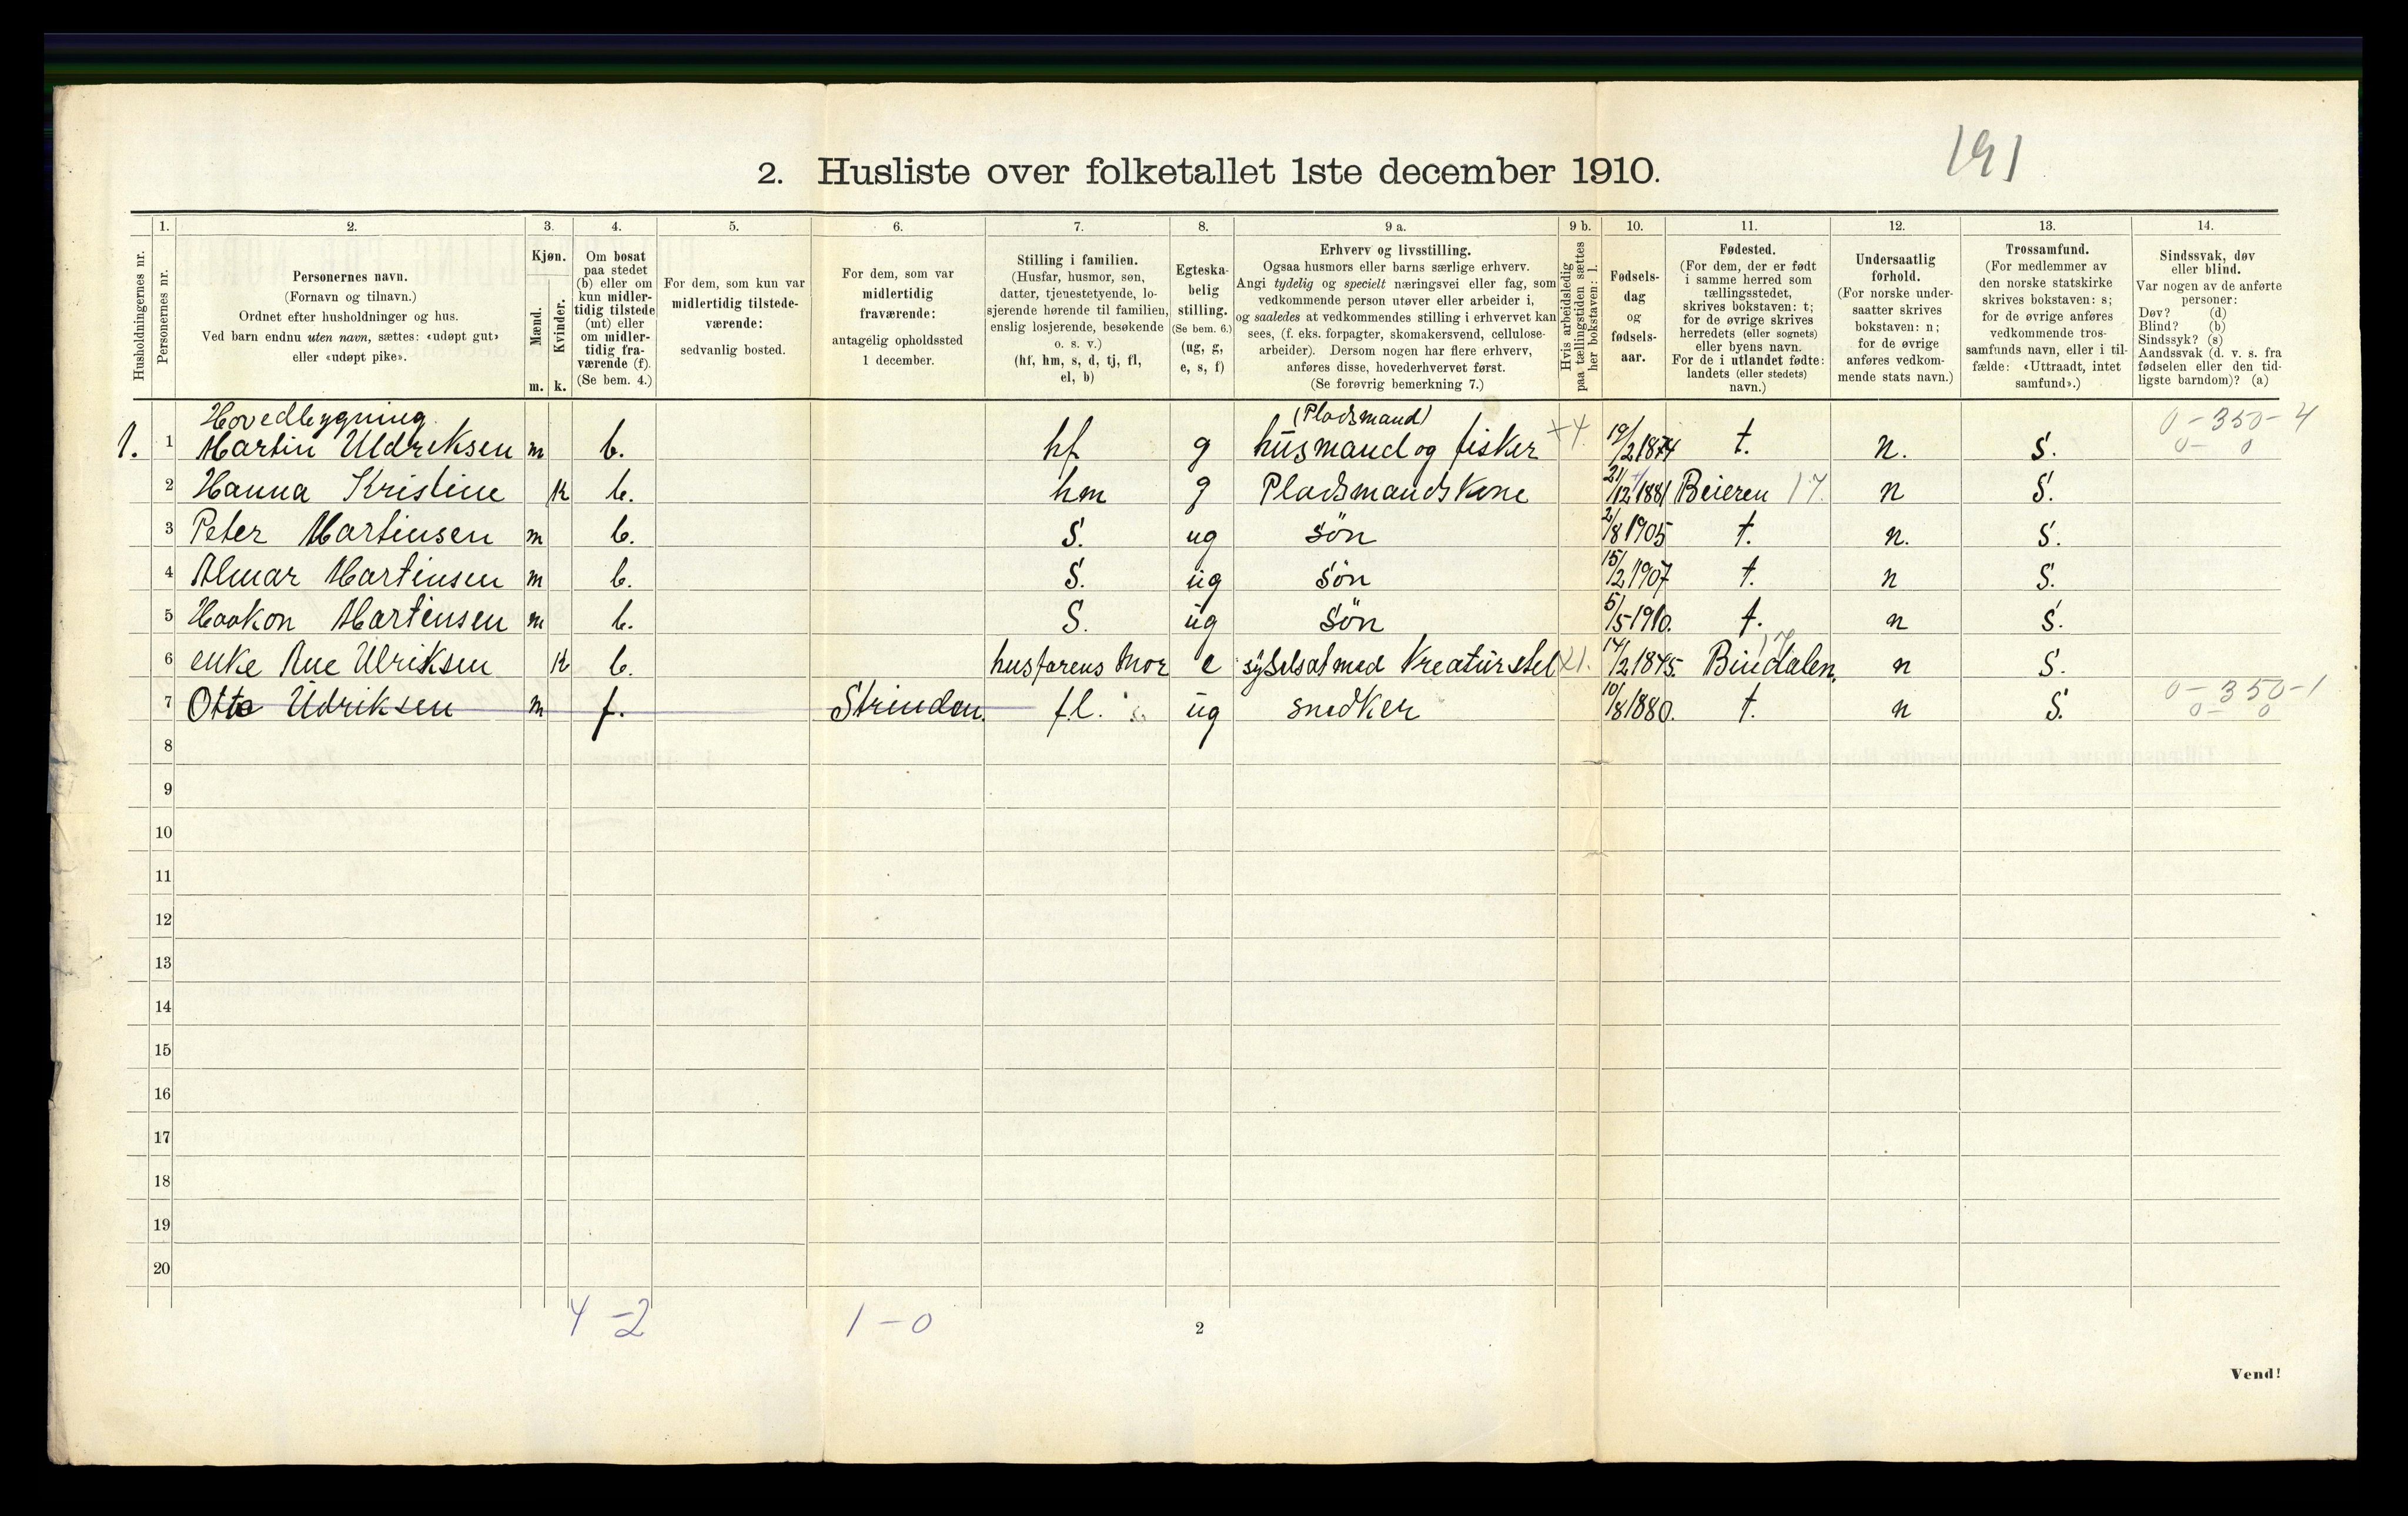 191
2. Husliste over folketallet 1ste december 1910.
1. 2. 3. 4. 5. 6. 7. 8. 9 a. 9 b. 10. 11. 12. 13. 14.
Husholdningernes nr.
Personernes nr.
Personernes navn.
(Fornavn og tilnavn.)
Ordnet efter husholdninger og hus.
Ved barn endnu uten navn, sættes: «udøpt gut»
eller «udøpt pike».
Kjøn.
Mænd.
Kvinder.
m. k.
Om bosat
paa stedet
(b) eller om
kun midler-
tidig tilstede
(mt) eller
om midler-
tidig fra-
værende (f).
(Se bem. 4.)
For dem, som kun var
midlertidig tilstede-
værende:
sedvanlig bosted.
For dem, som var
midlertidig
fraværende:
antagelig opholdssted
1 december.
Stilling i familien.
(Husfar, husmor, søn,
datter, tjenestetyende, lo-
sjerende hørende til familien,
enslig losjerende, besøkende
o. s. v.)
(hf, hm, s, d, tj, fl,
el, b)
Egteska-
belig
stilling.
(Se bem. 6.)
(ug, g,
e, s, f)
Erhverv og livsstilling.
Ogsaa husmors eller barns særlige erhverv.
Angi tydelig og specielt næringsvei eller fag, som
vedkommende person utøver eller arbeider i,
og saaledes at vedkommendes stilling i erhvervet kan
sees, (f. eks. forpagter, skomakersvend, cellulose-
arbeider). Dersom nogen har flere erhverv,
anføres disse, hovederhvervet først.
(Se forøvrig bemerkning 7.)
Hvis arbeidsledig
paa tællingstiden sættes
her bokstaven: l.
Fødsels-
dag
og
fødsels-
aar.
Fødested.
(For dem, der er født
i samme herred som
tællingsstedet,
skrives bokstaven: t;
for de øvrige skrives
herredets (eller sognets)
eller byens navn.
For de i utlandet fødte:
landets (eller stedets)
navn.)
Undersaatlig
forhold.
(For norske under-
saatter skrives
bokstaven: n;
for de øvrige
anføres vedkom-
mende stats navn.)
Trossamfund.
(For medlemmer av
den norske statskirke
skrives bokstaven: s;
for de øvrige anføres
vedkommende tros-
samfunds navn, eller i til-
fælde: «Uttraadt, intet
samfund».)
Sindssvak, døv
eller blind.
Var nogen av de anførte
personer:
Døv? (d)
Blind? (b)
Sindssyk? (s)
Aandssvak (d. v. s. fra
fødselen eller den tid-
ligste barndom)? (a)
Hovedbygning (Pladsmand) 0-350-4
1. 1 Martin Uldreksen m b. hf g husmand og fisker 19/2 1874 t. n. S. 0- 0
2 Hanna Kristine k b. hm g Pladsmandskone 21/12 1881 Beieren 17. n S.
3 Peter Martinsen m b. S. ug søn 2/8 1905 t. n. S.
4 Almar Martinsen m b. S. ug søn 15/2 1907 t. n S.
5 Haakon Martensen m b. S. ug søn 5/5 1910. t. n S.
6 enke Ane Ulriksen k b. husfarens mor e syselsat med Kreaturstel 14/2 1845. Bindalen. n S.
7 Otto Udriksen m f. Strinden. fl. ug snedker 10/8 1880. t. n S. 0-350-1
0- 0
8
9
10
11
12
13
14
15
16
17
18
19
20
4 - 2 1 - 0
2
Vend!